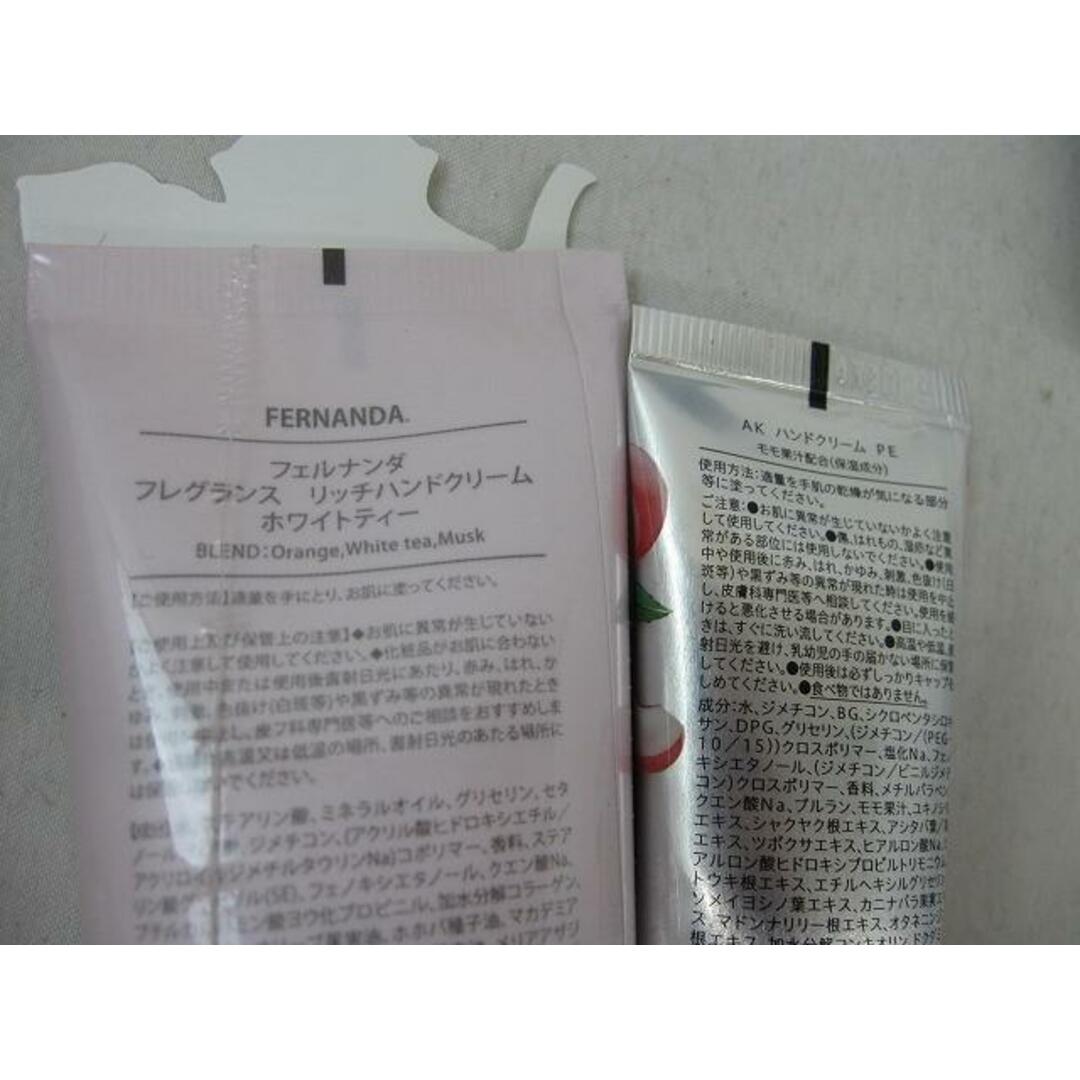 FERNANDA.
フェルナンダ
フレグランス リッチハンドクリーム
ホワイトティー
BLEND:Orange,White tea,Musk
【ご使用方法】適量を手にとり、お肌に塗ってください。
【ご使用上及び保管上の注意】◆お肌に異常が生じていない
かよく注意して使用してください。◆化粧品がお肌に合わない
とき、使用中または使用後直射日光にあたり、赤み、はれ、か
ゆみ、刺激、色抜け(白斑等)や黒ずみ等の異常が現れたとき
は使用を中止し、皮フ科専門医等へのご相談をおすすめしま
す。 高温又は低温の場所、直射日光のあたる場所に
は保管しないでください。
ステアリン酸、ミネラルオイル、グリセリン、セタ
ノール、 ジメチコン、(アクリル酸ヒドロキシエチル/
アクリロイルジメチルタウリンNa)コポリマー、香料、ステア
リン酸グリセリル(SE)、フェノキシエタノール、クエン酸Na、
ブチルカルバミン酸ヨウ化プロピニル、加水分解コラーゲン、
果実油、ホホバ種子油、マカデミア
メリアアザジ
AK ハンドクリーム PE
モモ果汁配合(保湿成分)
使用方法:適量を手肌の乾燥が気になる部分
等に塗ってください。
ご注意:●お肌に異常が生じていないかよく注意
して使用してください。●傷、はれもの、湿疹など異
常がある部位には使用しないでください。●使用
中や使用後に赤み、はれ、かゆみ、刺激、色抜け(白
斑等)や黒ずみ等の異常が現れた時は使用を中止
し、皮膚科専門医等へ相談してください。使用を続
けると悪化させる場合があります。●目に入ったと
きは、すぐに洗い流してください。●高温や低温、直
射日光を避け、乳幼児の手の届かない場所に保管
してください。●使用後は必ずしっかりキャップを
しめてください。●食べ物ではありません。
成分:水、ジメチコン、BG、シクロペンタシロキ
サン、DPG、グリセリン、(ジメチコン/(PEG-
10/15))クロスポリマー、塩化Na、フェノ
キシエタノール、(ジメチコン/ビニルジメチ
コン)クロスポリマー、香料、メチルパラベン、
クエン酸Na、プルラン、モモ果汁、ユキノシタ
エキス、シャクヤク根エキス、アシタバ葉/茎
エキス、ツボクサエキス、ヒアルロン酸Na、ヒ
アルロン酸ヒドロキシプロピルトリモニウム、
トウキ根エキス、エチルヘキシルグリセリン、
ソメイヨシノ葉エキス、カニナバラ果実エキ
ス、マドンナリリー根エキス、オタネニンジン
根エキス、加水分解コンキオリン、ドクダミ